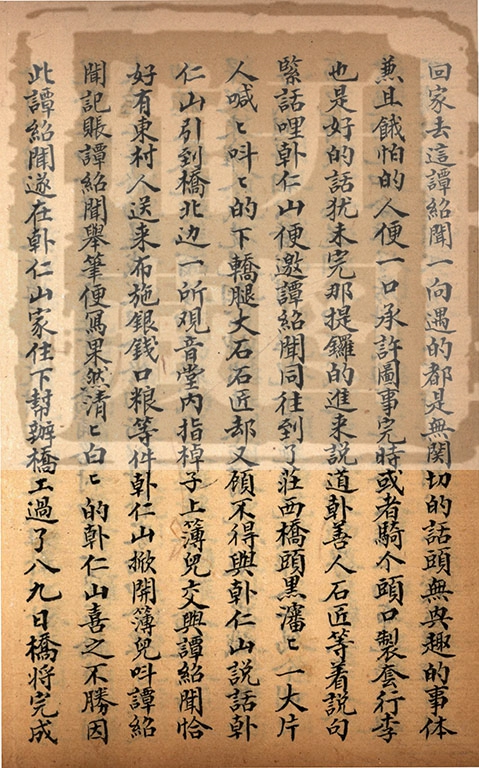 回家去這譚紹聞一向遇的都是無関切的話頭無興趣的事体
兼且餓怕的人便一口承許圖事完時或者騎个頭口製套行李
也是好的話犹未完那提鑼的進来説道卦善人石匠等着説句
緊話哩卦仁山便邀譚紹聞同往到了莊西橋頭黒瀋〻一大片
人喊〻呌〻的下轎腿大石石匠却又顧不得與卦仁山説話卦
仁山引到橋北边一所观音堂内指棹子上簿兒交與譚紹聞恰
好有東村人送来布施銀銭口粮等件卦仁山掀開簿兒呌譚紹
聞記賬譚紹聞舉筆便寫果然清〻白〻的卦仁山喜之不勝因
此譚紹聞遂在卦仁山家住下幇辦橋工過了八九日橋将完成